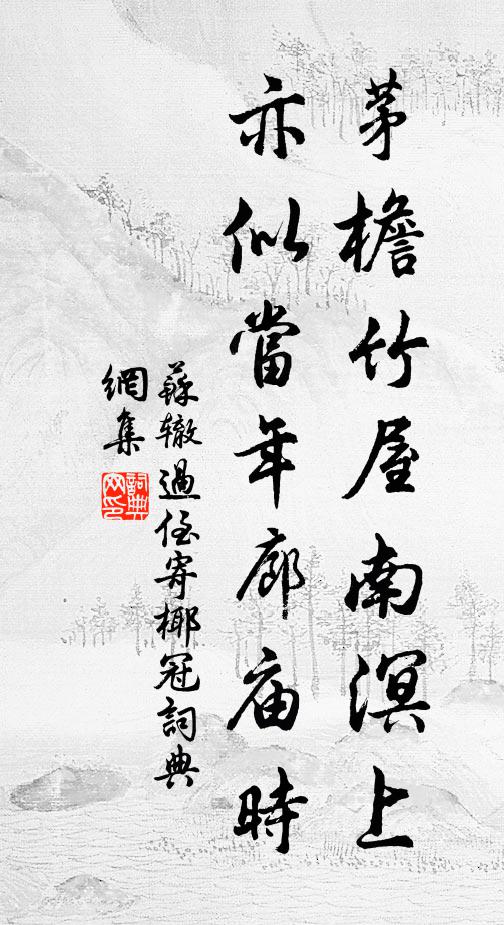 茅檐竹屋南溟上
亦似當年廊庙時
蘇辙過侄寄椰冠詞典
網集
詞典
网印